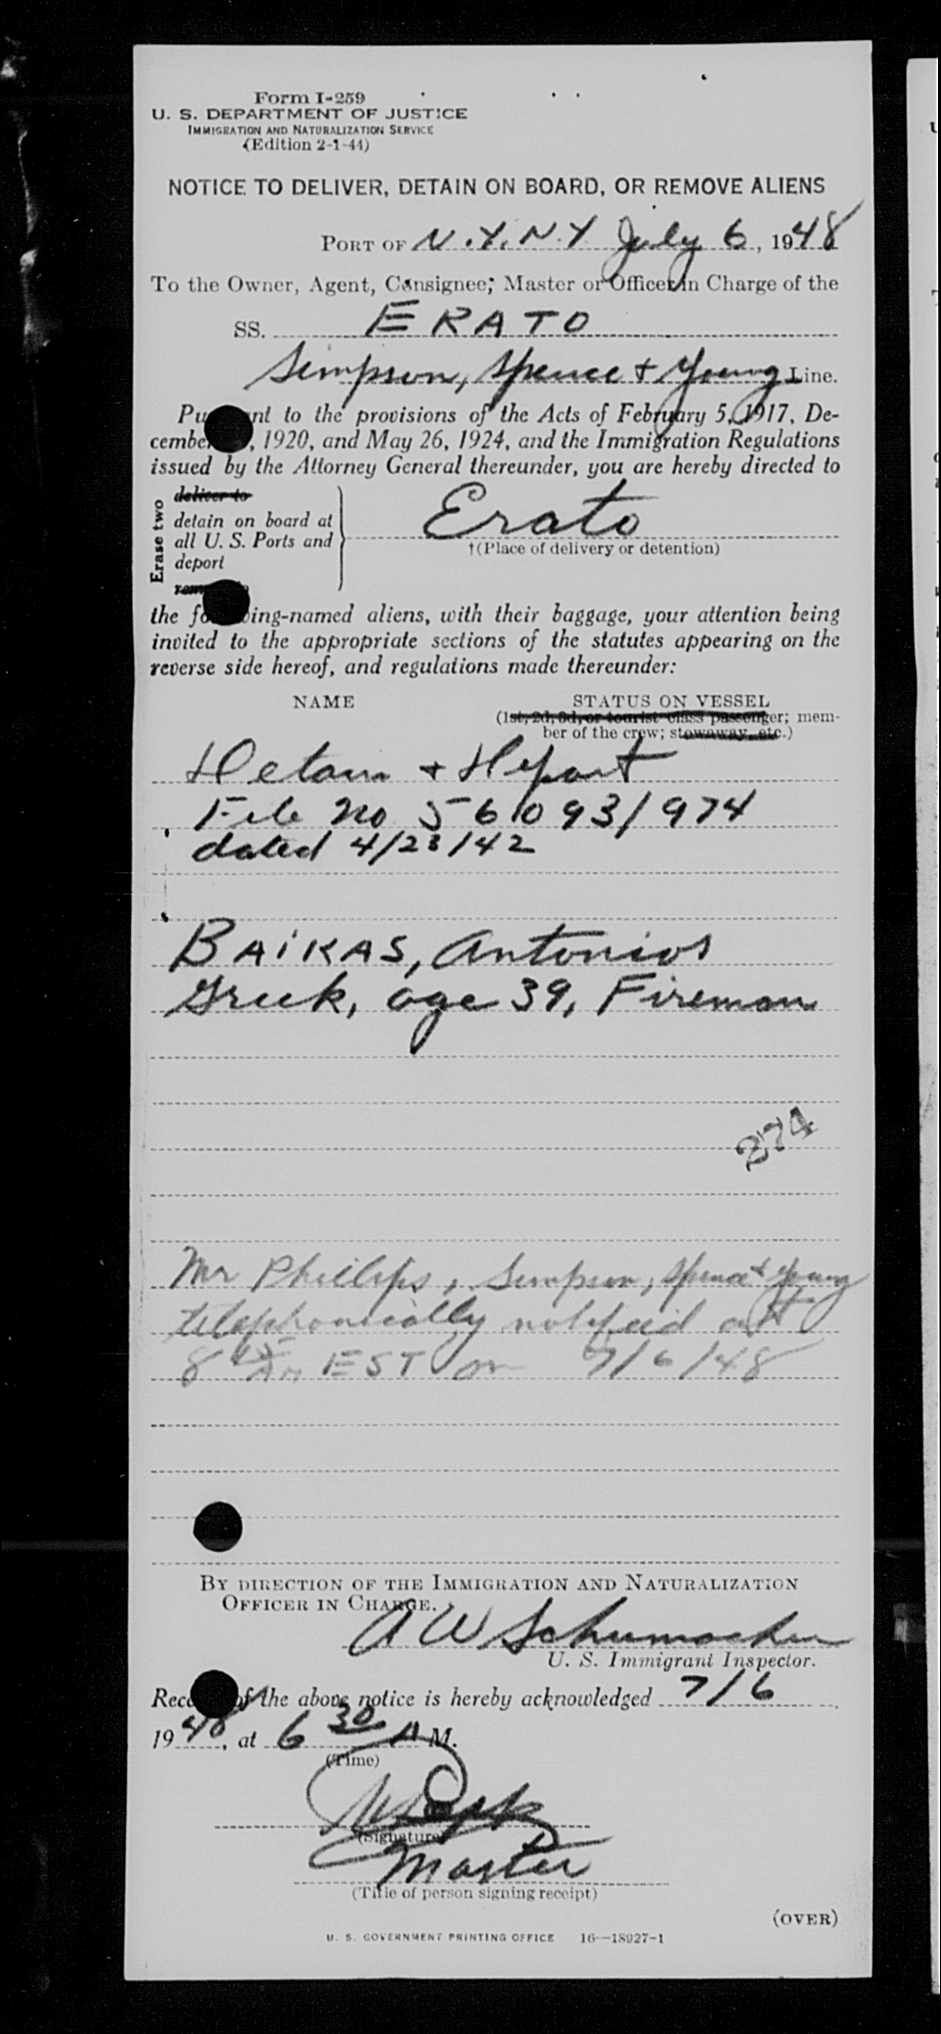 Form I-259
U. S. DEPARTMENT OF JUSTICE
IMMIGRATION AND NATURALIZATION SERVICE
(Edition 2-1-44)
NOTICE TO DELIVER, DETAIN ON BOARD, OR REMOVE ALIENS
PORT OF N.Y. N.Y July 6, 1948
To the Owner, Agent, Consignee, Master or Officer in Charge of the
SS. ERATO
Simpson, Spence & Young Line.
Pu nt to the provisions of the Acts of February 5, 1917, De-
cembe , 1920, and May 26, 1924, and the Immigration Regulations
issued by the Attorney General thereunder, you are hereby directed to
Erase two
deliver to
detain on board at
all U. S. Ports and
deport
Erato
†(Place of delivery or detention)
the fo ing-named aliens, with their baggage, your attention being
invited to the appropriate sections of the statutes appearing on the
reverse side hereof, and regulations made thereunder:
NAME STATUS ON VESSEL
(1st, 2d, 3d, or tourist class passenger; mem-
ber of the crew; stowaway, etc.)
Detain &
File No 56093/974
dated 4/23/42
BAiKAS, Antonios
Greek, age 39, Fireman
274
Mr Phillips, Simpson, Spence & Young
telephonically notified at
8 45 AM EST on 7/6/48
BY DIRECTION OF THE IMMIGRATION AND NATURALIZATION
OFFICER IN CHARGE.
A W Schumacher
U. S. Immigrant Inspector.
Rece of the above notice is hereby acknowledged 7/6
1948, at 6 30 A M.
(Time)
(Signature)
Master
(Title of person signing receipt)
(OVER)
U. S. GOVERNMENT PRINTING OFFICE 16—18927-1